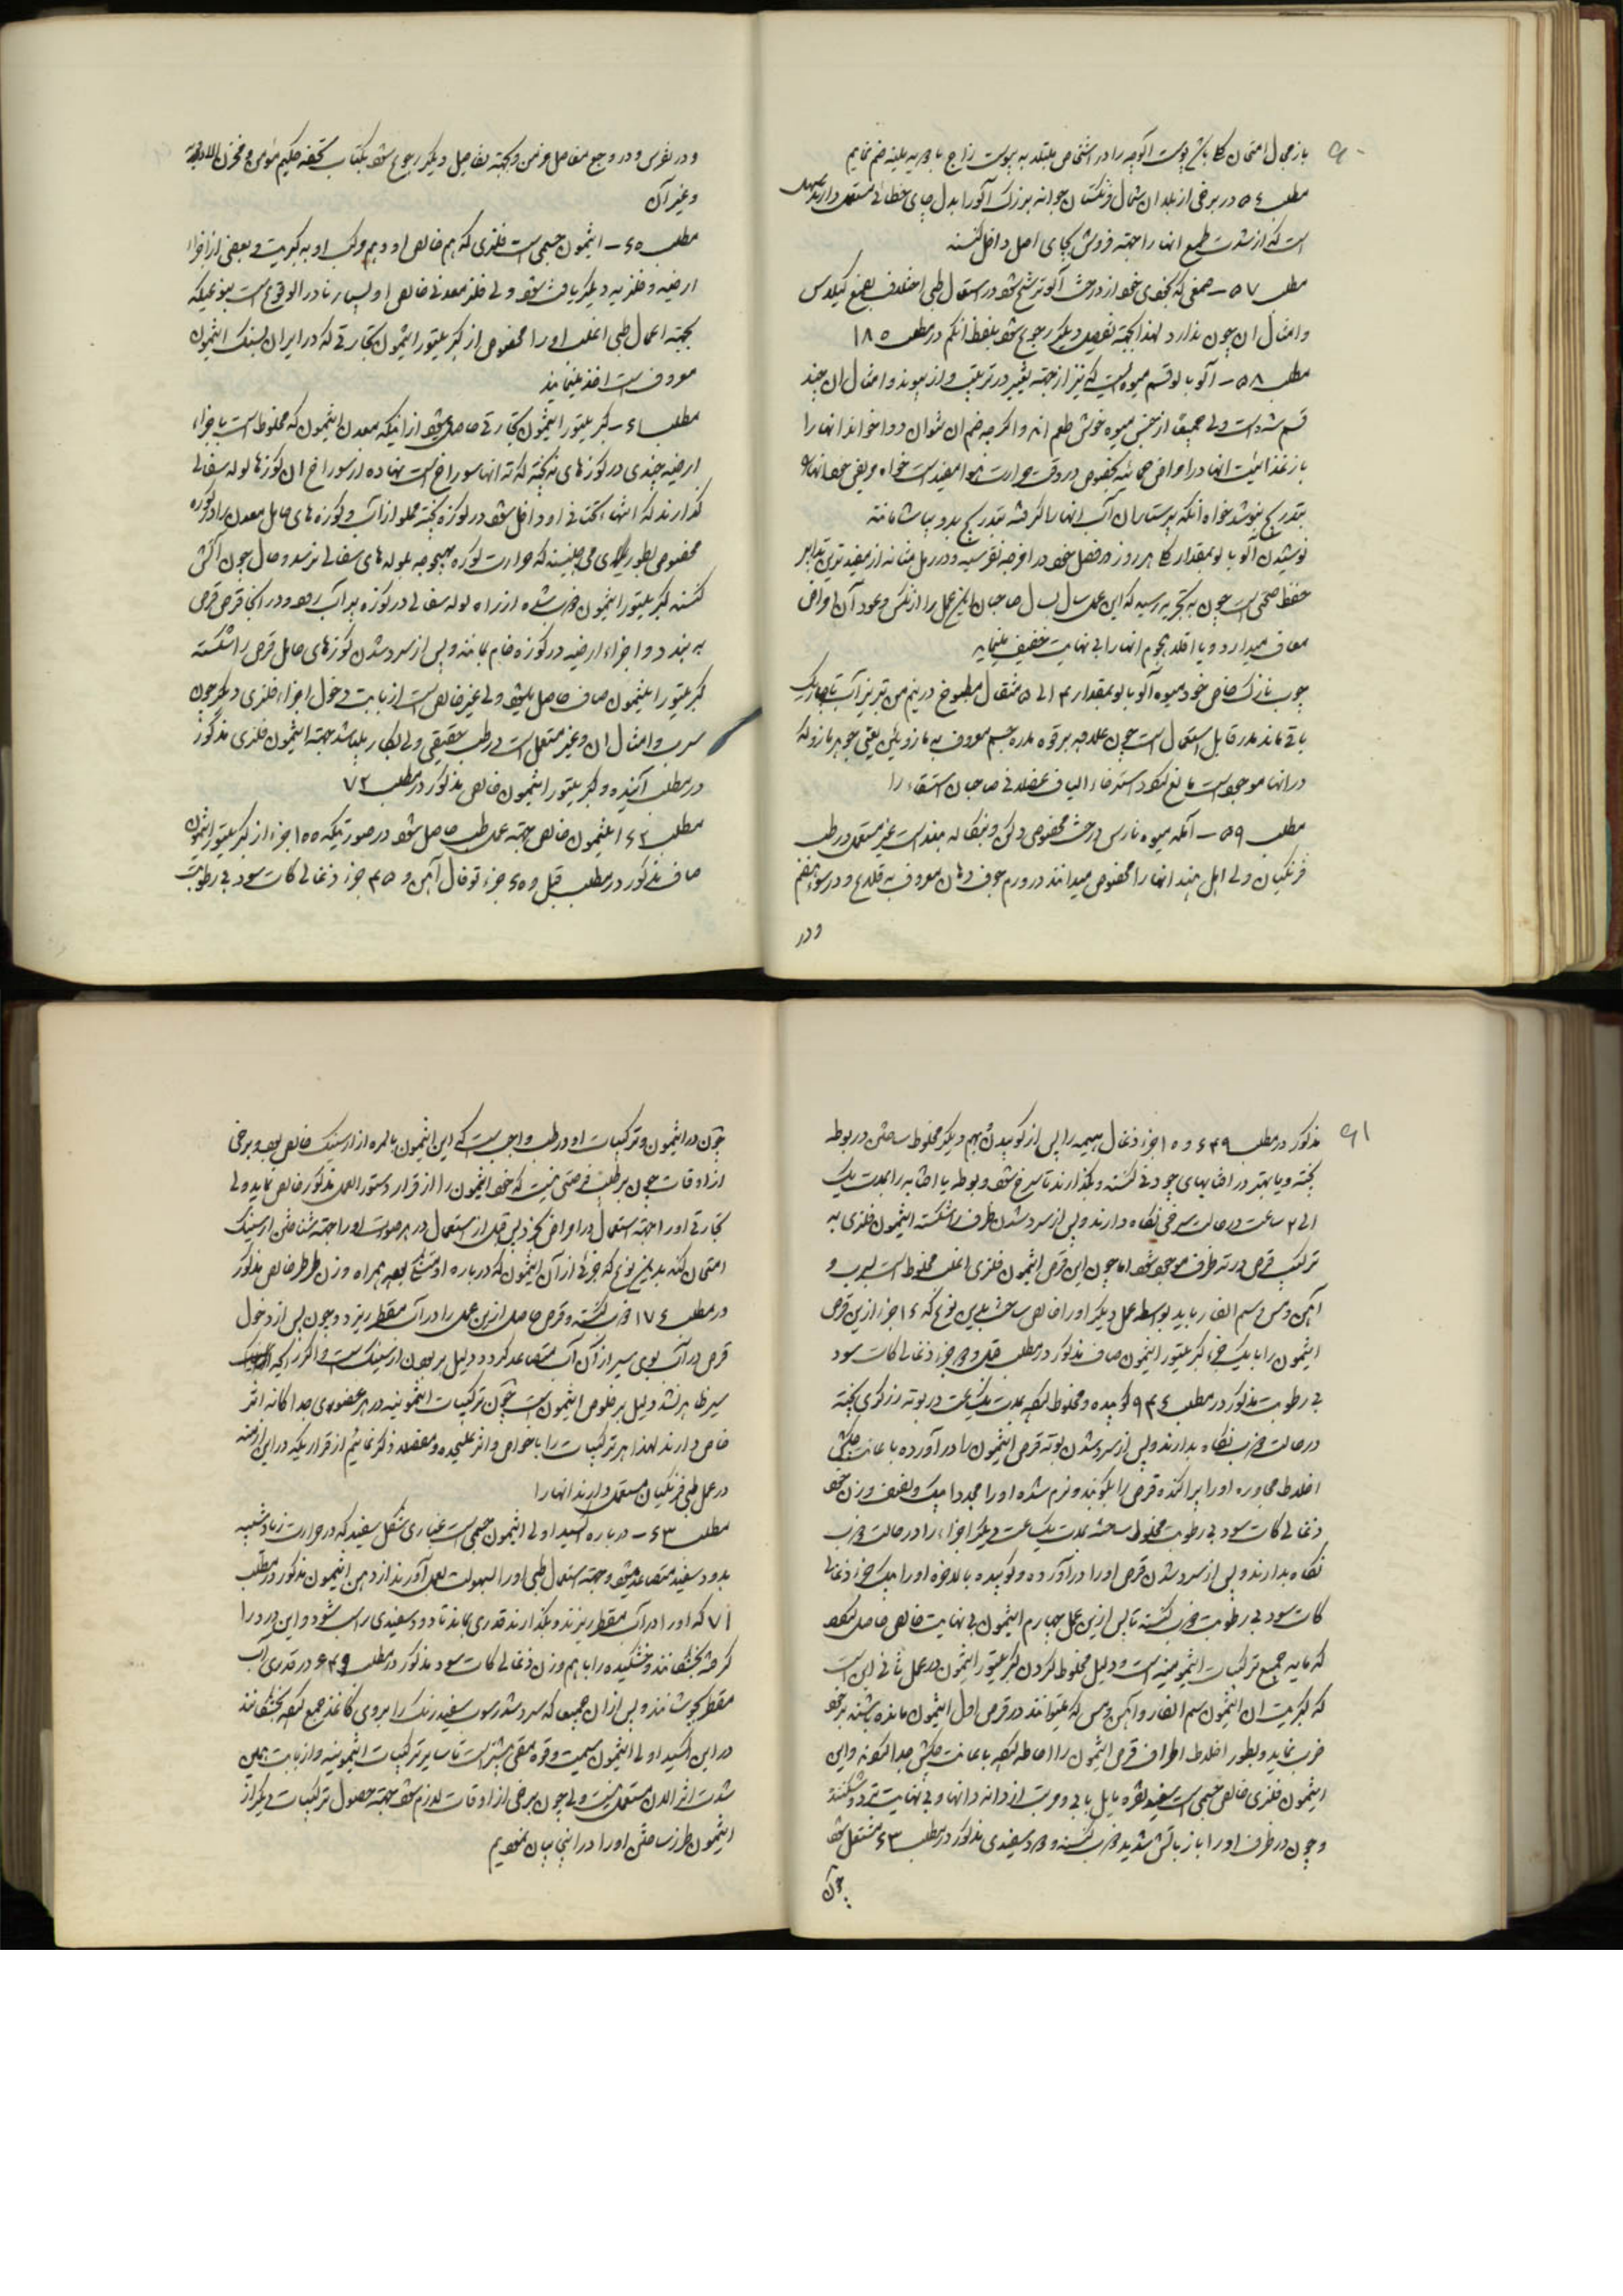 باز محال امتحان کلا پوست آلوچه را در اشخاص مبتلا به یبوست مزاج با ضم نمایم
مطلب ۵۶ در برخی از بلدان شمال فرنگستان جوانه بزرگ آلو را بدل چای خطائی مستعمل دارند
است که از شدت طمع انها را جهته فروش بجای اصل داخل کنند
مطلب ۵۷ – صمغی که بخودی خود از درخت آلو ترشح شود در استعمال طبی اختلاف بصمغ
و امثال ان چون ندارد لهذا بجهته تفصیل دیگر رجوع شود بلفظ انگم در مطلب ۱۸۵
مطلب ۵۸ – آلو بالو قسم میوه ایست که نیز از جهته تغییر در تربیت و از پیوند و امثال ان چند
قسم شده است ولی جمیعا از جنس میوه خوش طعم اند و اگر چه ضم ان نتوان دوا خواند انها را
باز غذائیت انها در امراض بخصوص در وقت حرارت هوا مفید است خواه مریض خود انها را
بتدریج بنوشد خواه آنکه پرستاران آب انها را گرفته بتدریج بدو بیاشامانند
نوشیدن آلو بالو بمقدار هر روز در فصل خود در اوجه نقرسیه و در رمل مثانه از مفیدترین تدابیر
حفظ صحتی است چون به تجربه رسیده که این عمل سال بسال صاحبان این علل را از نکس و عود آن امراض
معاف میدارد و یا اقلا هجوم انها را بی نهایت خفیف مینماید
چوب نازک خاص خود میوه آلو بالو بمقدار ۳ الی ۵ مثقال مطبوخ در نیم من تبریز آب تا چاریک
باقی ماند مدر قابل استعمال است چون علاوه بر قوه مدره جسم معروف به مازوئین یعنی جوهر مازو که
در انها موجود است مانع استرخاء الیاف عضلانی صاحبان استسقاء را
مطلب ۵۹ – آمله میوه نارس درخت مخصوص دکن و بنگاله هند است غیر مستعمل در طب
فرنگیان ولی اهل هند انها را مخصوص میدانند در ورم جوف دهان معروف به قلاع و در سوء هضم
و در
و در نقرس و در وجع مفاصل مزمن و بجهته تفاصیل دیگر رجوع شود بکتاب تحفه حکیم مؤمن و مخزن الادویه
و غیر آن
مطلب ۶۰ – انتیمون جسمی است فلزی که هم خالص او و هم مرکب او به کبریت و بعضی از اجزاء
ارضیه و فلزیه دیگر یافت شود ولی فلز معدنی خالص او بسیار نادر الوقوع است بنوعیکه
بجهته اعمال طبی اغلب او را مخصوص از کبریتور انتیمون تجارتی که در ایران بسنگ انتیمون
معروف است اخذ مینمایند
مطلب ۶۱ – کبریتور انتیمون تجارتی حاصل میشود از انیکه معدن انتیمون که مخلوط است باجزاء
ارضیه چندی در کوزهای نه پخته که ته انها سوراخ است نهاده از سوراخ ان کوزها لوله سفالی
گذارند که انتهاء تحتانی او داخل شود در کوزه پخته مملو از آب و کوزه های حامل معدن را در کوره
مخصوص بطوری می چینند که حرارت کوره بهیچوجه بلوله های سفالی نرسد و حال چون آتش
کنند کبریتور انتیمون ذوب شده از راه لوله سفالی در کوزه پر آب رود و در انجا قرص قرص
به بندد و اجزاء ارضیه در کوزه خام بمانند و پس از سرد شدن کوزهای حامل قرص را شکسته
کبریتور انتیمون صاف حاصل میشود ولی غیر خالص است از بابت دخول اجزاء فلزی دیگر چون
سرب و امثال ان و غیر مستعمل است در طب حقیقی ولی بکار میباشد جهته انتیمون فلزی مذکور
در مطلب آینده و کبریتور انتیمون خالص مذکور در مطلب ۷۲
مطلب ۶۲ انتیمون خالص جهته عمل طب حاصل شود در صورتیکه ۱۰۰ جزء از کبریتور انتیمون
صاف مذکور در مطلب قبل و ۶۰ جزء توفال آهن و ۴۵ جزء ذغالی کات سود بی رطوبت
۹۱
مذکور در مطلب ۶۴۹ و ۱۰ جزء ذغال هیمه را پس از کوبیدن بهم دیگر مخلوط ساختن در بوطه
پخته و یا بهتر در چودنی کنند و بگذارند تا سرخ شود و بوطه یا را بمدت یک
الی ۲ ساعت در حالت سرخی نگاه دارند و پس از سرد شدن ظرف را شکسته انتیمون فلزی به
ترکیب قرص در ته ظرف موجود شود اما چون این قرص انتیمون فلزی اغلب مخلوط است بسرب و
آهن و مس و سم الفار باید بوسطه عمل دیگر او را خالص ساخت بدین نوع که ۱۶ جزء از این قرص
انتیمون را با یک جزء کبریتور انتیمون صاف مذکور در مطلب قبل و ۲ جزء ذغالی کات سود
بی رطوبت مذکور در مطلب ۶۴۹ کوبیده و مخلوط کرده بمدت یکساعت در بوته زرگری پخته
در حالت ذوب نگاه بدارند و پس از سرد شدن بوته قرص انتیمون را در آورده باعانت چکش
اخلاط مجاوره او را پراکنده قرص را بکوبند و نرم شده او را مجددا بیک و نصف وزن خود
ذغالی کات سود بی رطوبت مخلوط ساخته بمدت یکساعت دیگر اجزاء را در حالت ذوب
نگاه بدارند و پس از سرد شدن قرص او را در آورده و کوبیده بالاخره او را بیک جزء ذغالی
کات سود بی رطوبت ذوب کنند تا پس از این عمل چهارم انتیمون بی نهایت خالص حاصل شود
که مایه جمیع ترکیبات انتیمونیه است و دلیل مخلوط کردن کبریتور انتیمون در عمل ثانی این است
که کبریت ان انتیمون سم الفار و آهن و مس که میتوانند در قرص اول انتیمون مانده باشند بر خود
جذب نماید و بطور اخلاط اطراف قرص انتیمون را احاطه کرده باعانت چکش جدا شود و این
انتیمون فلزی خالص جسمی است سفید نقره مایل بابی و مرتب از دانه دانها و بی نهایت ترد و شکننده
و چون در ظرف او را باز باتش شدید ذوب کنند و دود سفیدی مذکور در مطلب ۶۳ مشتعل شود
چون
چون در انتیمون و ترکیبات او در طب واجب است که این انتیمون بالمره از ارسنیک خالص بود و برخی
از اوقات چون بر طبیب فرصتی نیست که خود انتیمون را از قرار دستور العمل مذکور خالص نماید ولی
تجارتی او را جهته استعمال در امراض بخرد پس قبل از استعمال در هر صورت او را جهته شناختن ارسنیک
امتحان کند بدین نوع که جزئی از آن انتیمون که درباره او بود همراه وزن طرطر خالص مذکور
در مطلب ۱۷۴ ذوب کرده و قرص حاصل از این عمل را در آب مقطر ریزد و چون پس از دخول
قرص در آب بوی سیر از آن آب متصاعد گردد دلیل بر بودن ارسنیک است و اگر رایحه
سیر ظاهر نشد دلیل بر خلوص انتیمون است چون ترکیبات انتیمونیه در هر عضوی جداگانه اثر
خاص دارند لهذا هر ترکیبات را با خواص و اثر علیحده و مفصله ذکر نمائیم از قراریکه در این ازمنه
در عمل طبی فرنگیان مستعمل دارند انها را
مطلب ۶۳ – درباره اکسید اولی انتیمون جسمی است غباری شکل سفید که در حرارت زیاد شبیه
بدود سفید متصاعد میشود و جهته استعمال طبی او را بسهولت بعمل آورند از دهن انتیمون مذکور در مطلب
۷۱ که او را در آب مقطر ریزند و بگذارند قدری بماند تا درد سفیدی راسب شود و این درد را
گرفته بخشکانند و خشکیده را با هم وزن ذغالی کات سود مذکور در مطلب ۶۴۹ در قدری آب
مقطر بجوشانند و پس از ان جمیعا که سرد شد رسوب سفید رنگ را بر روی کاغذ جمع کرده بخشکانند
در این اکسید اولی انتیمون سمیت و قوه مقئی بیشتر است تا سایر ترکیبات انتیمونیه و از بابت همین
شدت اثر الان مستعمل نیست ولی چون برخی از اوقات لازم شود جهته حصول ترکیبات دیگر از
انتیمون طرز ساختن او را در اینجا بیان نمودیم